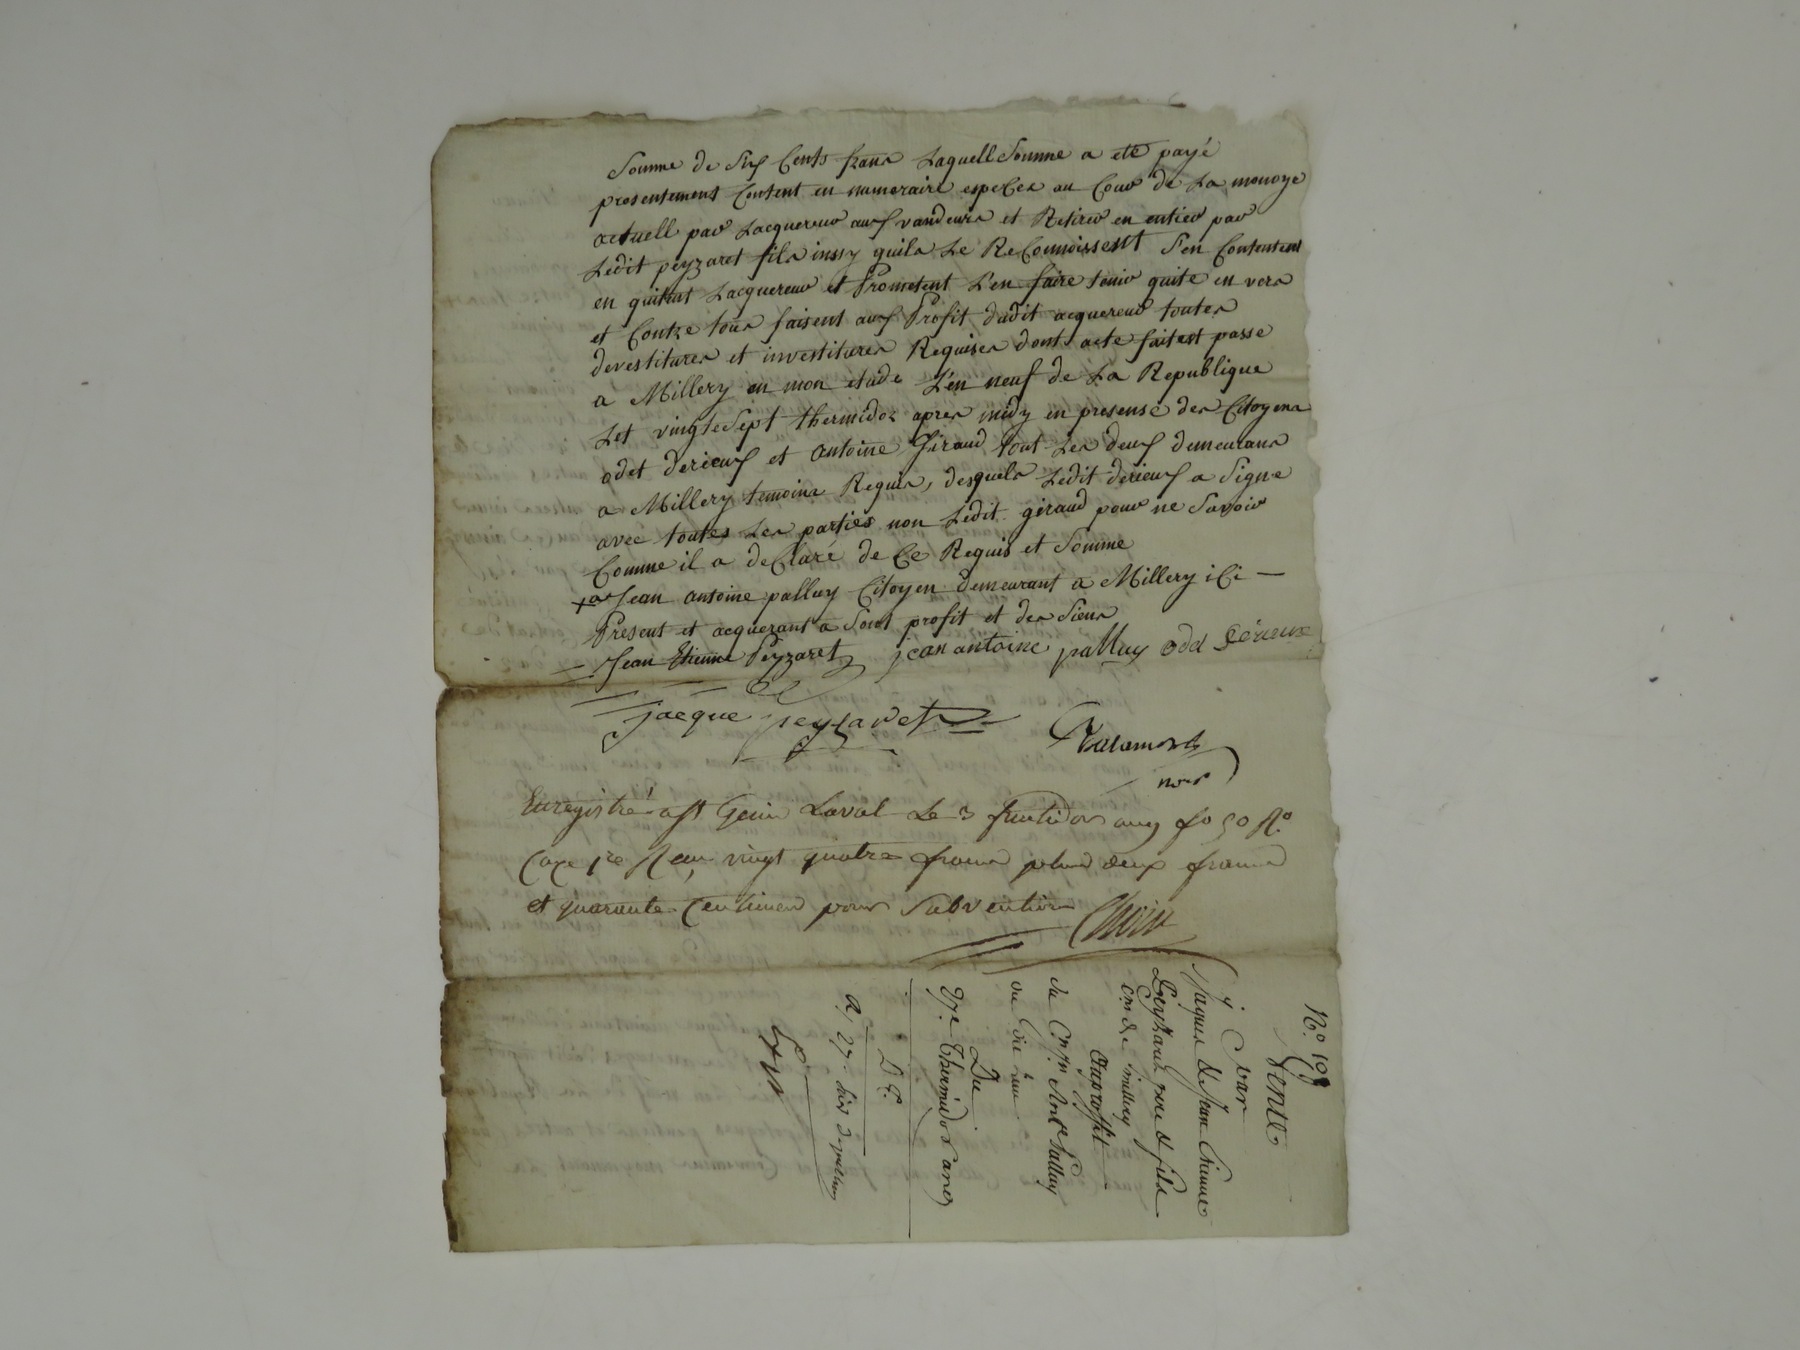 Somme de Six Cents frans Laquell Somme a eté payé
presentement Content en numeraire espeCes au Cour de La monoye
actuell par Lacquereur aux vandeurs et Retirer en entier par
Ledit peyzaret fils inssy quils Le ReConnoissent S'en Contentent
en quitant Lacquereur et Prometent L'en faire tenir quite en vers
et Contre tous faisent aux Profit dudit acquereur toutes
devestitures et investitures Requises dont acte fait est passe
a Millery en mon étude L'en neuf de La Republique
Let vingtesept thermidor apres midy en presense des Citoyens
odet derieux et antoine Giraud tout Les deux demeurans
a Millery temoins Requis, desquels Ledit derieux a Signe
avec toutes Les parties non Ledit giraud pour ne Savoir
Comme il a deClaré de Ce Requis et Somme
+ a Jean antoine palluy Citoyen demeurant a Millery iCi —
Present et acquerant a Sont profit et des Siens
Jean Etienne Peyzaret jean antoine palluy odet Dérieux
jacque peyzaret
nore
Enregistré a st Genis Laval Le 3 fructidor an 9 fo 50 Ro
Case 1re Reçu vingt quatre francs plus deux francs
et quarante Centimes pour Subvention
No. 199
Vente
par
Jaques & Jean Etienne
Peyzaret pere & fils
de millery
Auproffit
du Cyn Ante Palluy
du Dit lieu
Du
27e Thermidor an 9